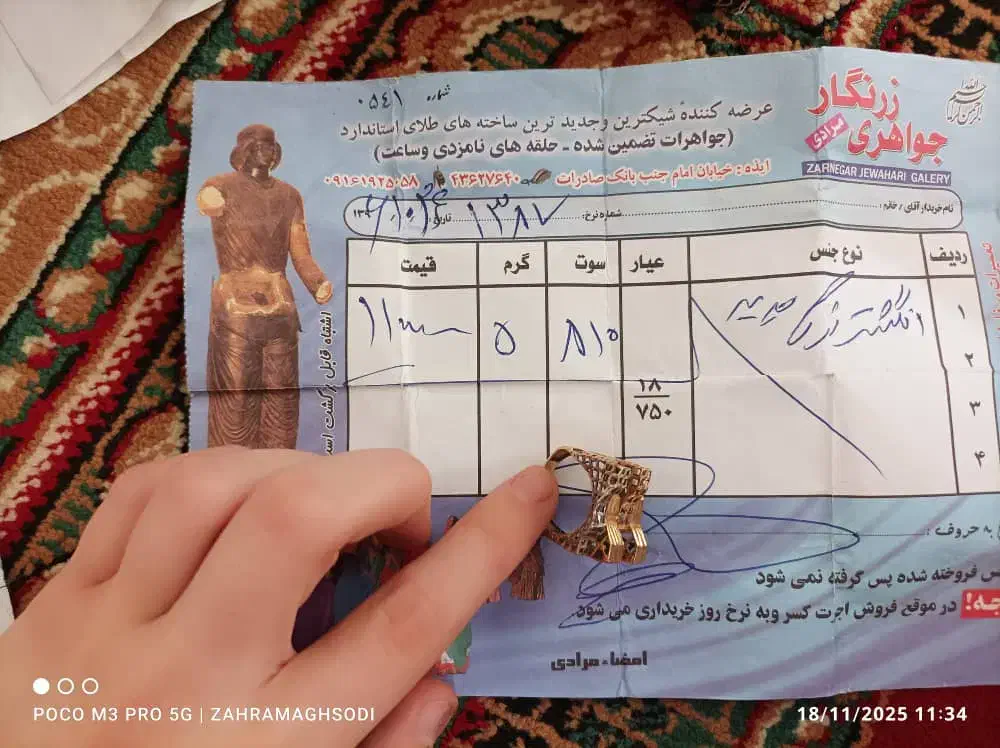 شماره ۰۵۴۱
زرنگار
جواهری
مرادی
ZARNEGAR JEWAHARI GALERY
عرضه کنندهٔ شیکترین وجدید ترین ساخته های طلای استاندارد
(جواهرات تضمین شده ـ حلقه های نامزدی وساعت)
ایذه : خیابان امام جنب بانک صادرات ۴۳۶۲۷۶۴۰ ۰۹۱۶۱۹۲۵۰۵۸
نام خریدار آقای / خانم : شماره نرخ: تاریخ
ردیف نوع جنس عیار سوت گرم قیمت
۱ انگشتر ۸۱۰ ۵
۲
۳ ۱۸
۷۵۰
۴
به حروف :
فروخته شده پس گرفته نمی شود
در موقع فروش اجرت کسر وبه نرخ روز خریداری می شود
امضاء مرادی
اشتباه قابل برگشت
POCO M3 PRO 5G | ZAHRAMAGHSODI
18/11/2025 11:34